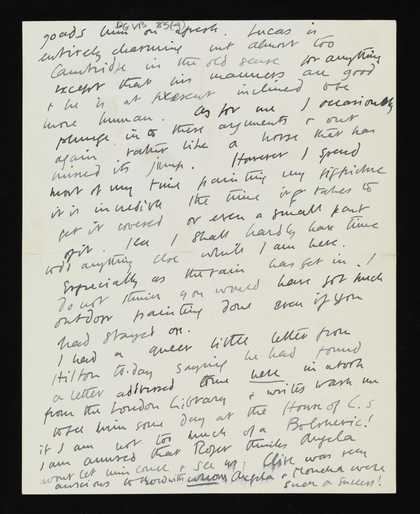 DG VB 85(4)
goads him on afresh. Lucas is
entirely charming but almost too
Cambridge in the old sense for anything
except that his manners are good
& he is at present inclined to be
more human. As for me I occasionally
plunge into these arguments & out
again rather like a horse that has
missed its jump. However I spend
most of my time painting my big picture
it is incredible the time it takes to
get it covered or even a small part
of it. I shall hardly have time
to do anything else while I am here.
Especially as the rain has set in. I
do not think you would have got much
outdoor painting done even if you
had stayed on.
I had a queer little letter from
Hilton today saying he had found
a letter addressed to me here in a book
from the London Library & writes to ask me
to see him some day at the House of C.s
if I am not too much of a Bolshevic!
I am amused that Roger thinks Angela
won't let him come & see us! Clive was very
anxious to know with whom Angela & Moncha were
such a success!